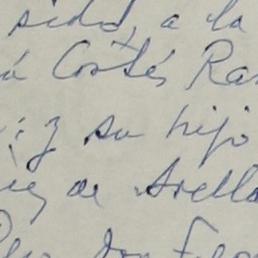 sido, a la
á Cortés Ra
; y su hijo
ez de Arella
Don